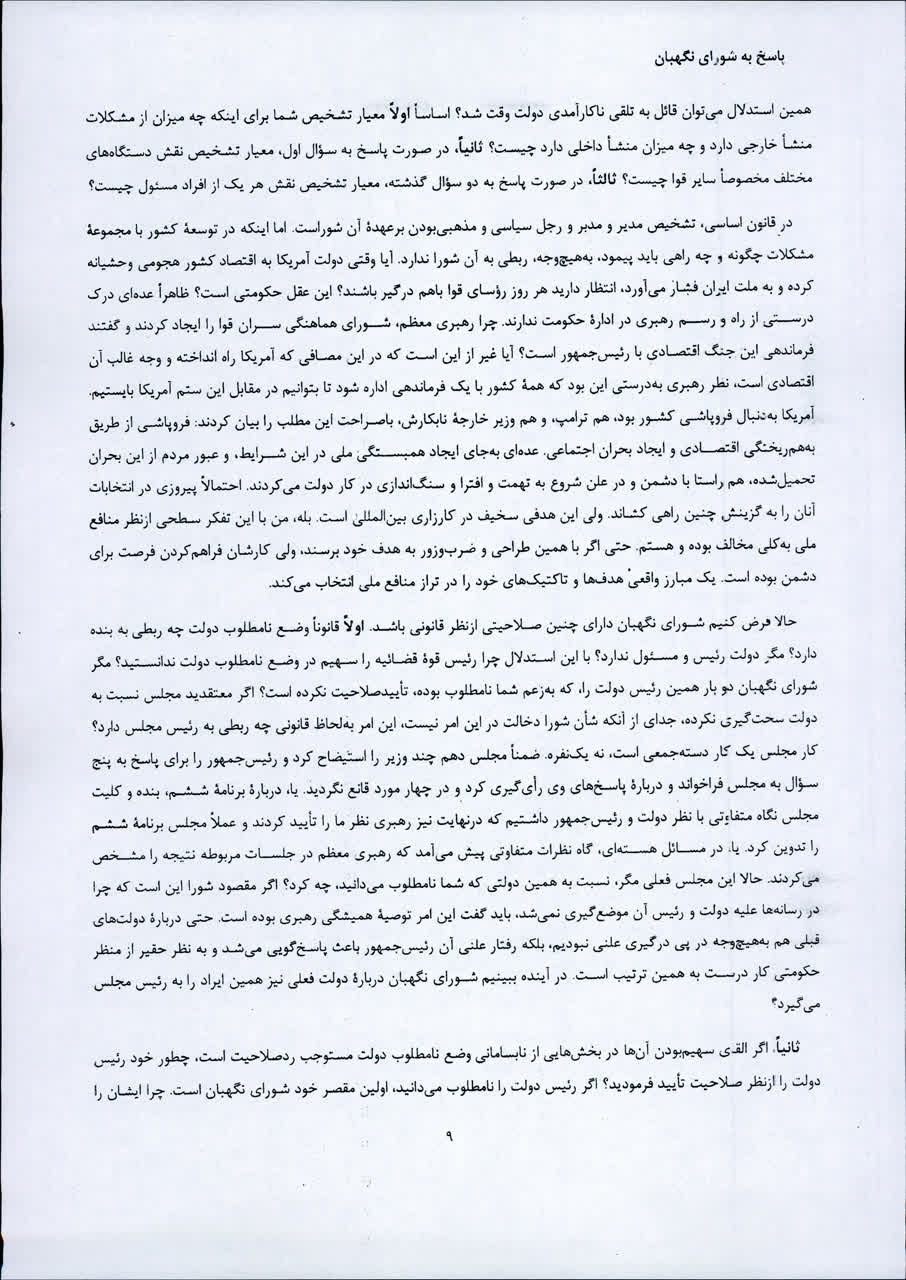 پاسخ به شورای نگهبان
همین استدلال می‌توان قائل به تلقی ناکارآمدی دولت وقت شد؟ اساساً اولاً معیار تشخیص شما برای اینکه چه میزان از مشکلات
منشأ خارجی دارد و چه میزان منشأ داخلی دارد چیست؟ ثانیاً، در صورت پاسخ به سؤال اول، معیار تشخیص نقش دستگاه‌های
مختلف مخصوصاً سایر قوا چیست؟ ثالثاً، در صورت پاسخ به دو سؤال گذشته، معیار تشخیص نقش هر یک از افراد مسئول چیست؟
در قانون اساسی، تشخیص مدیر و مدبر و رجل سیاسی و مذهبی‌بودن برعهدهٔ آن شوراست. اما اینکه در توسعهٔ کشور با مجموعهٔ
مشکلات چگونه و چه راهی باید پیمود، به‌هیچ‌وجه، ربطی به آن شورا ندارد. آیا وقتی دولت آمریکا به اقتصاد کشور هجومی وحشیانه
کرده و به ملت ایران فشار می‌آورد، انتظار دارید هر روز رؤسای قوا باهم درگیر باشند؟ این عقل حکومتی است؟ ظاهراً عده‌ای درک
درستی از راه و رسم رهبری در ادارهٔ حکومت ندارند. چرا رهبری معظم، شورای هماهنگی سران قوا را ایجاد کردند و گفتند
فرماندهی این جنگ اقتصادی با رئیس‌جمهور است؟ آیا غیر از این است که در این مصافی که آمریکا راه انداخته و وجه غالب آن
اقتصادی است، نطر رهبری به‌درستی این بود که همهٔ کشور با یک فرماندهی اداره شود تا بتوانیم در مقابل این ستم آمریکا بایستیم.
آمریکا به‌دنبال فروپاشی کشور بود، هم ترامپ، و هم وزیر خارجهٔ نابکارش، باصراحت این مطلب را بیان کردند: فروپاشی از طریق
به‌هم‌ریختگی اقتصادی و ایجاد بحران اجتماعی. عده‌ای به‌جای ایجاد همبستگی ملی در این شرایط، و عبور مردم از این بحران
تحمیل‌شده، هم راستا با دشمن و در علن شروع به تهمت و افترا و سنگ‌اندازی در کار دولت می‌کردند. احتمالاً پیروزی در انتخابات
آنان را به گزینش چنین راهی کشاند. ولی این هدفی سخیف در کارزاری بین‌المللی است. بله، من با این تفکر سطحی ازنظر منافع
ملی به‌کلی مخالف بوده و هستم. حتی اگر با همین طراحی و ضرب‌وزور به هدف خود برسند، ولی کارشان فراهم‌کردن فرصت برای
دشمن بوده است. یک مبارز واقعی هدف‌ها و تاکتیک‌های خود را در تراز منافع ملی انتخاب می‌کند.
حالا فرض کنیم شورای نگهبان دارای چنین صلاحیتی ازنظر قانونی باشد. اولاً قانوناً وضع نامطلوب دولت چه ربطی به بنده
دارد؟ مگر دولت رئیس و مسئول ندارد؟ با این استدلال چرا رئیس قوهٔ قضائیه را سهیم در وضع نامطلوب دولت ندانستید؟ مگر
شورای نگهبان دو بار همین رئیس دولت را، که به‌زعم شما نامطلوب بوده، تأییدصلاحیت نکرده است؟ اگر معتقدید مجلس نسبت به
دولت سخت‌گیری نکرده، جدای از آنکه شأن شورا دخالت در این امر نیست، این امر به‌لحاظ قانونی چه ربطی به رئیس مجلس دارد؟
کار مجلس یک کار دسته‌جمعی است، نه یک‌نفره. ضمناً مجلس دهم چند وزیر را استیضاح کرد و رئیس‌جمهور را برای پاسخ به پنج
سؤال به مجلس فراخواند و دربارهٔ پاسخ‌های وی رأی‌گیری کرد و در چهار مورد قانع نگردید. یا، دربارهٔ برنامهٔ ششم، بنده و کلیت
مجلس نگاه متفاوتی با نظر دولت و رئیس‌جمهور داشتیم که درنهایت نیز رهبری نظر ما را تأیید کردند و عملاً مجلس برنامهٔ ششم
را تدوین کرد. یا، در مسائل هسته‌ای، گاه نظرات متفاوتی پیش می‌آمد که رهبری معظم در جلسات مربوطه نتیجه را مشخص
می‌کردند. حالا این مجلس فعلی مگر، نسبت به همین دولتی که شما نامطلوب می‌دانید، چه کرد؟ اگر مقصود شورا این است که چرا
در رسانه‌ها علیه دولت و رئیس آن موضع‌گیری نمی‌شد، باید گفت این امر توصیهٔ همیشگی رهبری بوده است. حتی دربارهٔ دولت‌های
قبلی هم به‌هیچ‌وجه در پی درگیری علنی نبودیم، بلکه رفتار علنی آن رئیس‌جمهور باعث پاسخ‌گویی می‌شد و به نظر حقیر از منظر
حکومتی کار درست به همین ترتیب است. در آینده ببینیم شورای نگهبان دربارهٔ دولت فعلی نیز همین ایراد را به رئیس مجلس
می‌گیرد؟
ثانیاً. اگر القای سهیم‌بودن آن‌ها در بخش‌هایی از نابسامانی وضع نامطلوب دولت مستوجب ردصلاحیت است، چطور خود رئیس
دولت را ازنظر صلاحیت تأیید فرمودید؟ اگر رئیس دولت را نامطلوب می‌دانید، اولین مقصر خود شورای نگهبان است. چرا ایشان را
۹